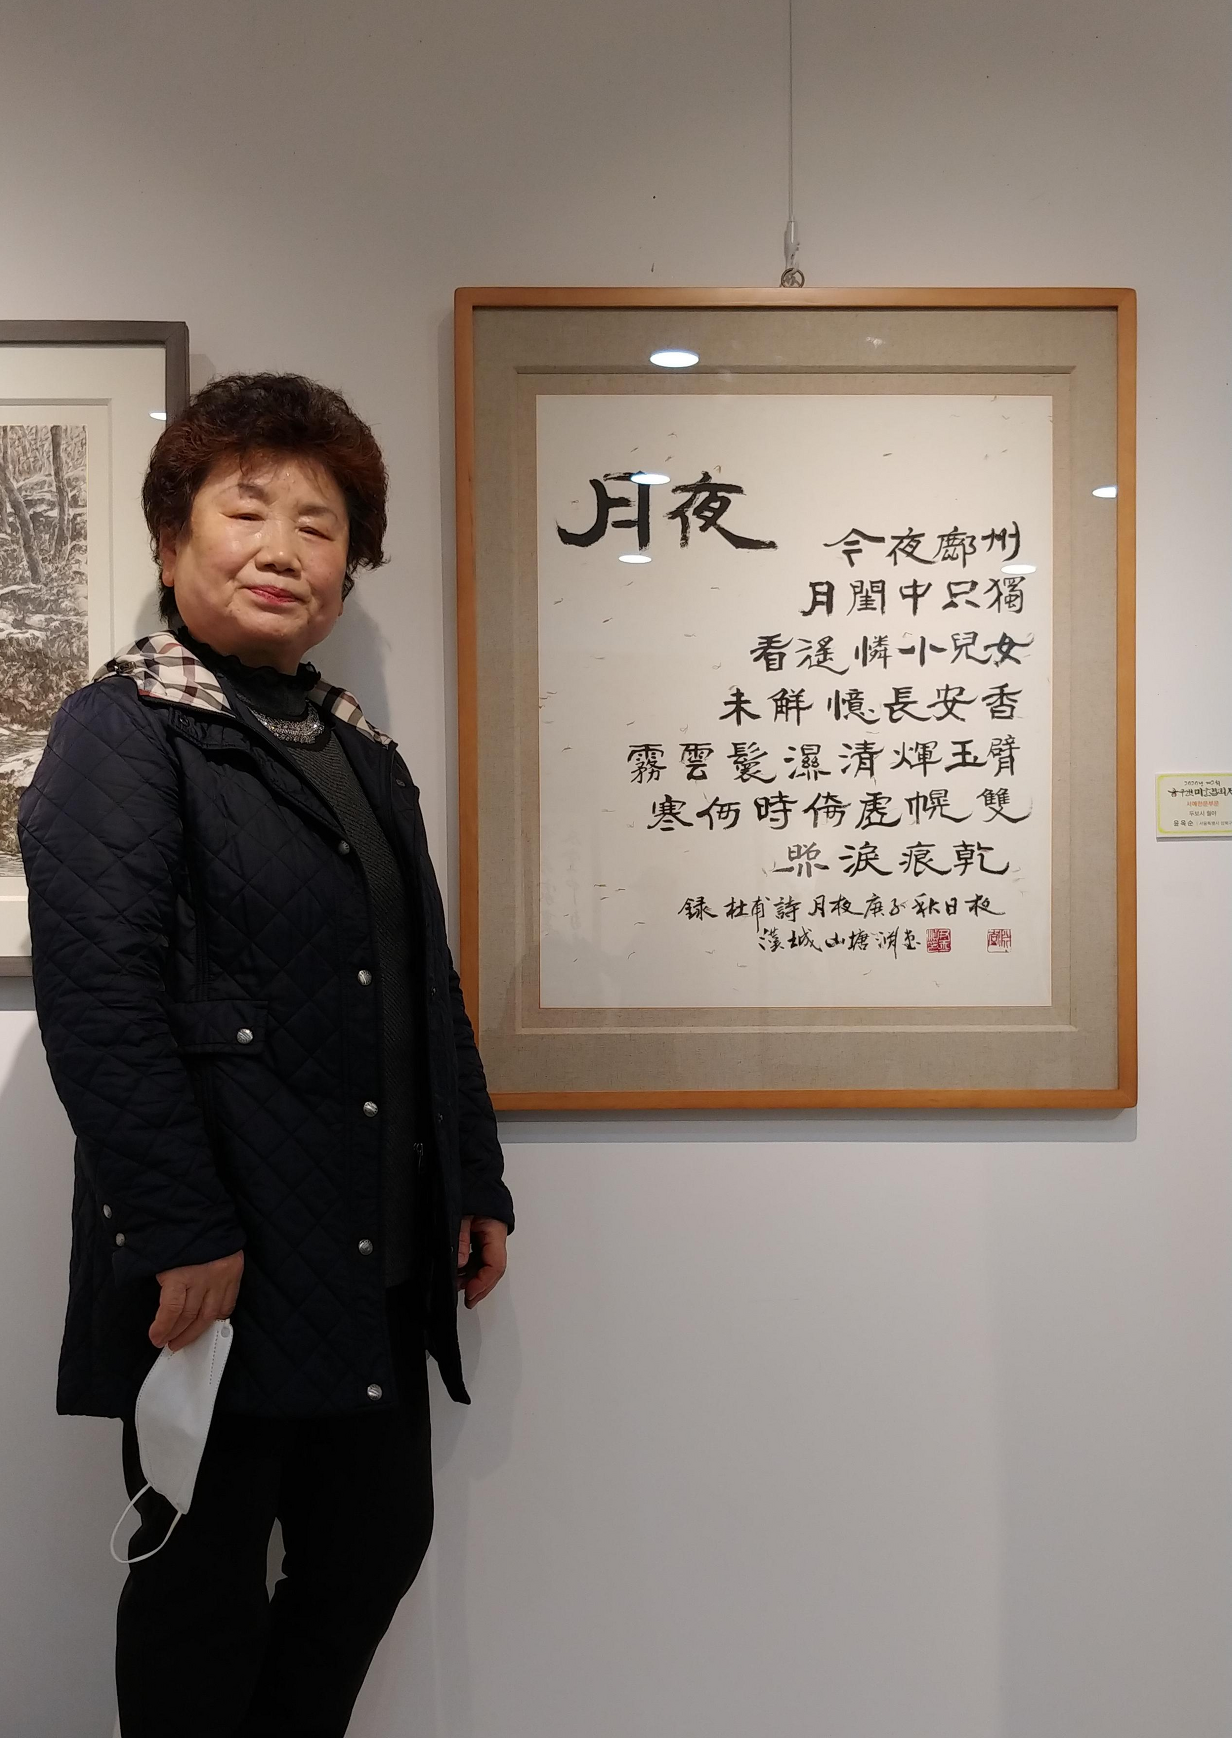 月夜
今夜鄜州
月閨中只獨
看遙憐小兒女
未解憶長安香
霧雲鬟濕清輝玉臂
寒何時倚虛幌雙
照淚痕乾
録杜甫詩月夜庚子秋日夜
漢城山塘
서예한문부문
두보시 월야
윤옥순